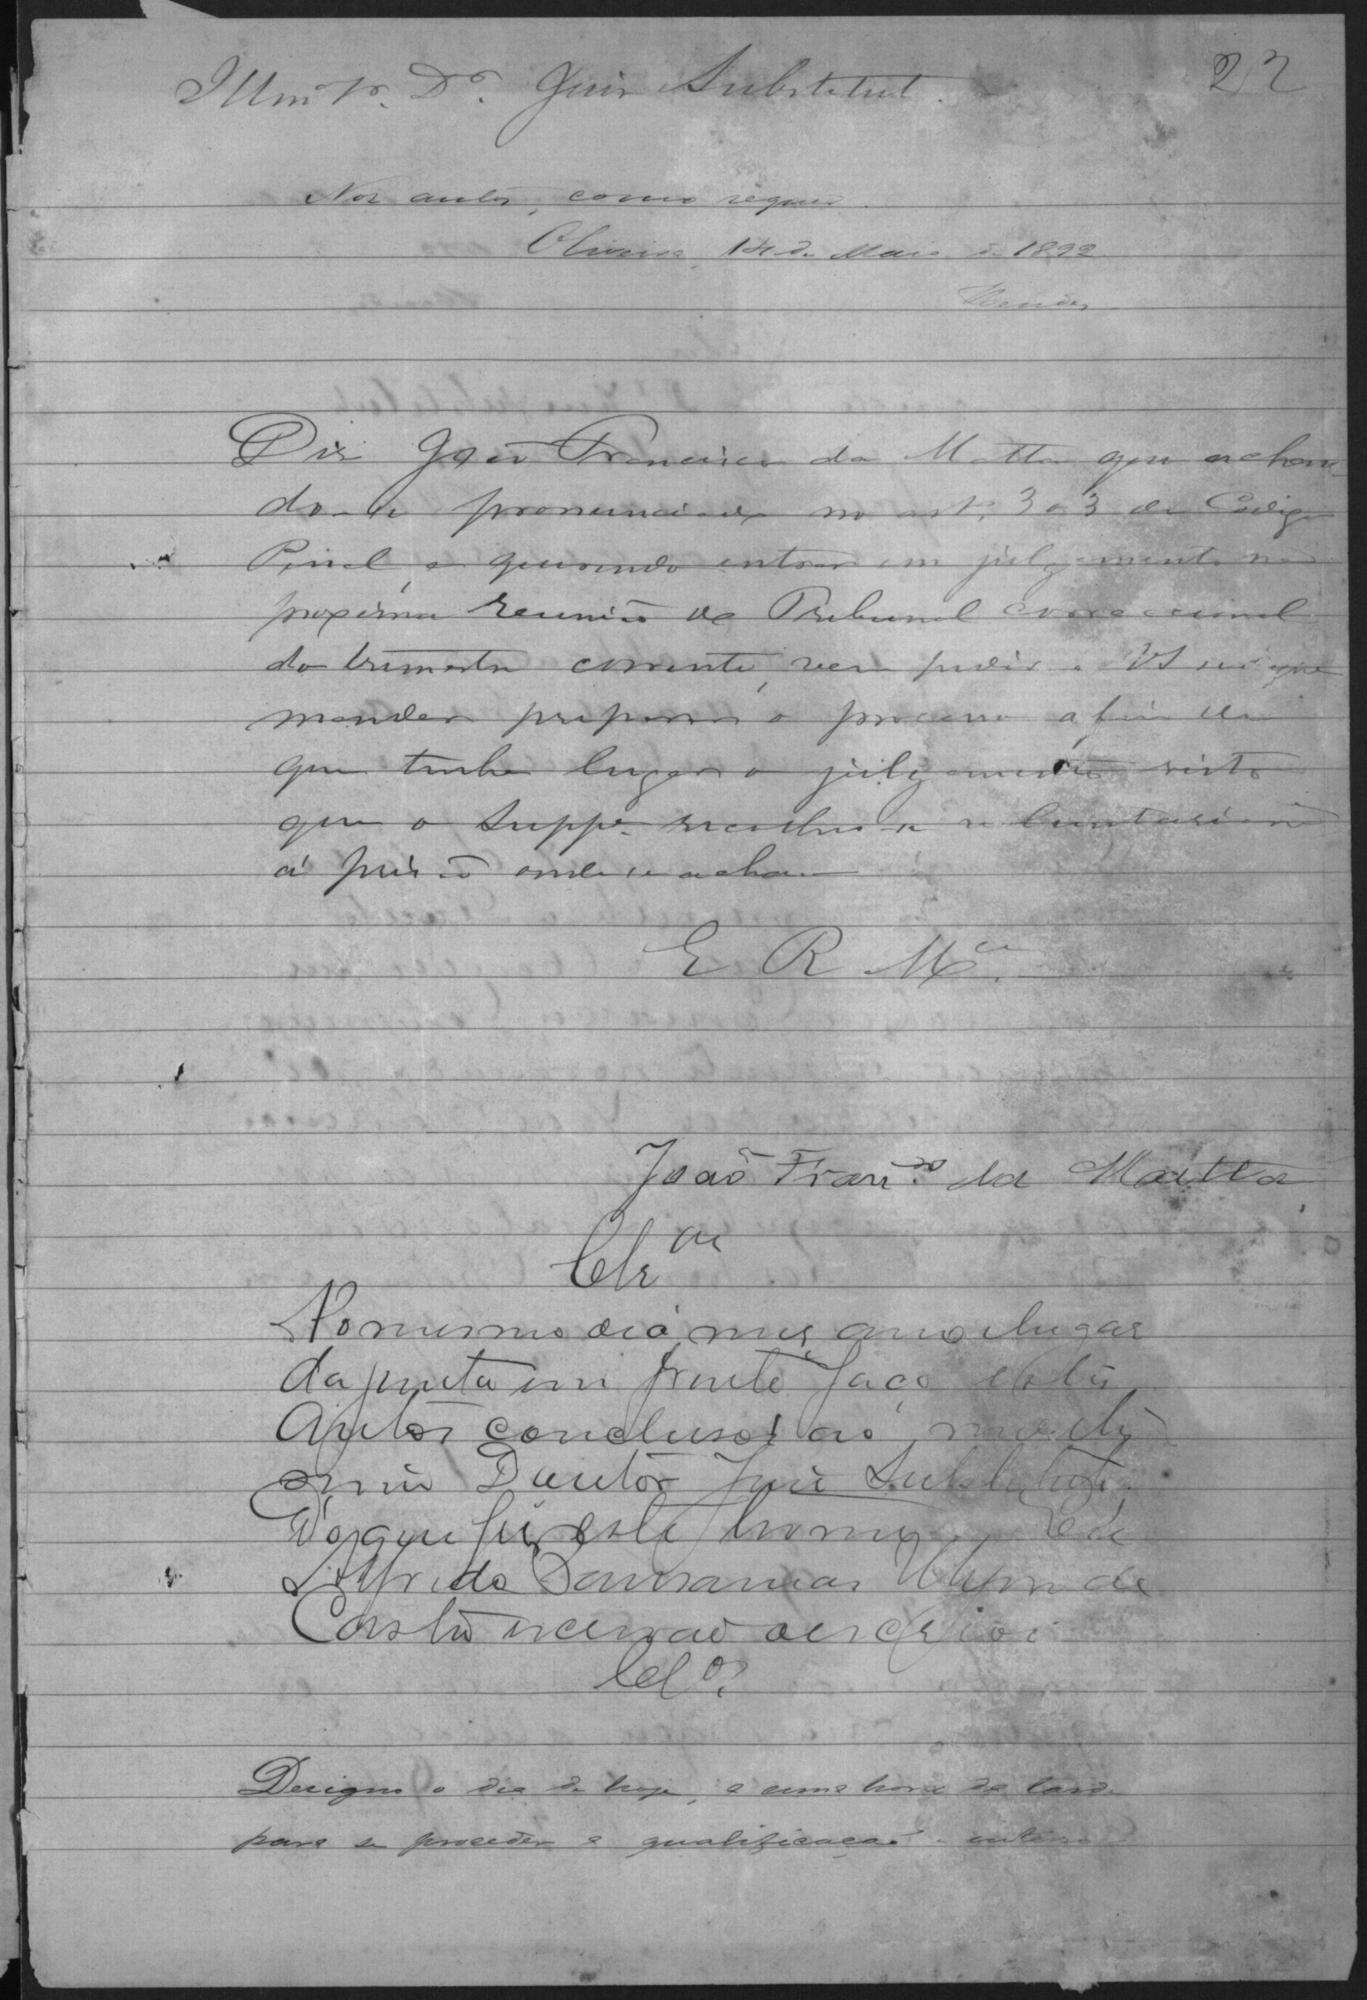 22
Illmo Sr. Dr. Juis Substetut.
Nos autos, como requer.
Oliveira, 14 de Maio de 1892
Diz João Francisco da Motta que achan-
do-se pronunciado no art. 303 do Codigo
Penal, e querendo entrar em julgamento na
proxima reunião do Tribunal correccional
do trimestre corrente, vem pedir a VS
mandar preparar o processo afim de
que tenha lugar o julgamento visto
que o Suppe. recolheu-se
á prisão onde se acha
E R Mce.
João Franco. da Motta
Clsão
No mesmo dia, mes, anno e lugar
da junta em frente faço estes
Autos conclusos ao
Doutor Juis Substituto,
Do que fis este termo. Eu
Alfredo
Costa escrivão o escrevi
Clo.
Designo o dia de hoje, a uma hora da tarde
para se proceder a qualificação